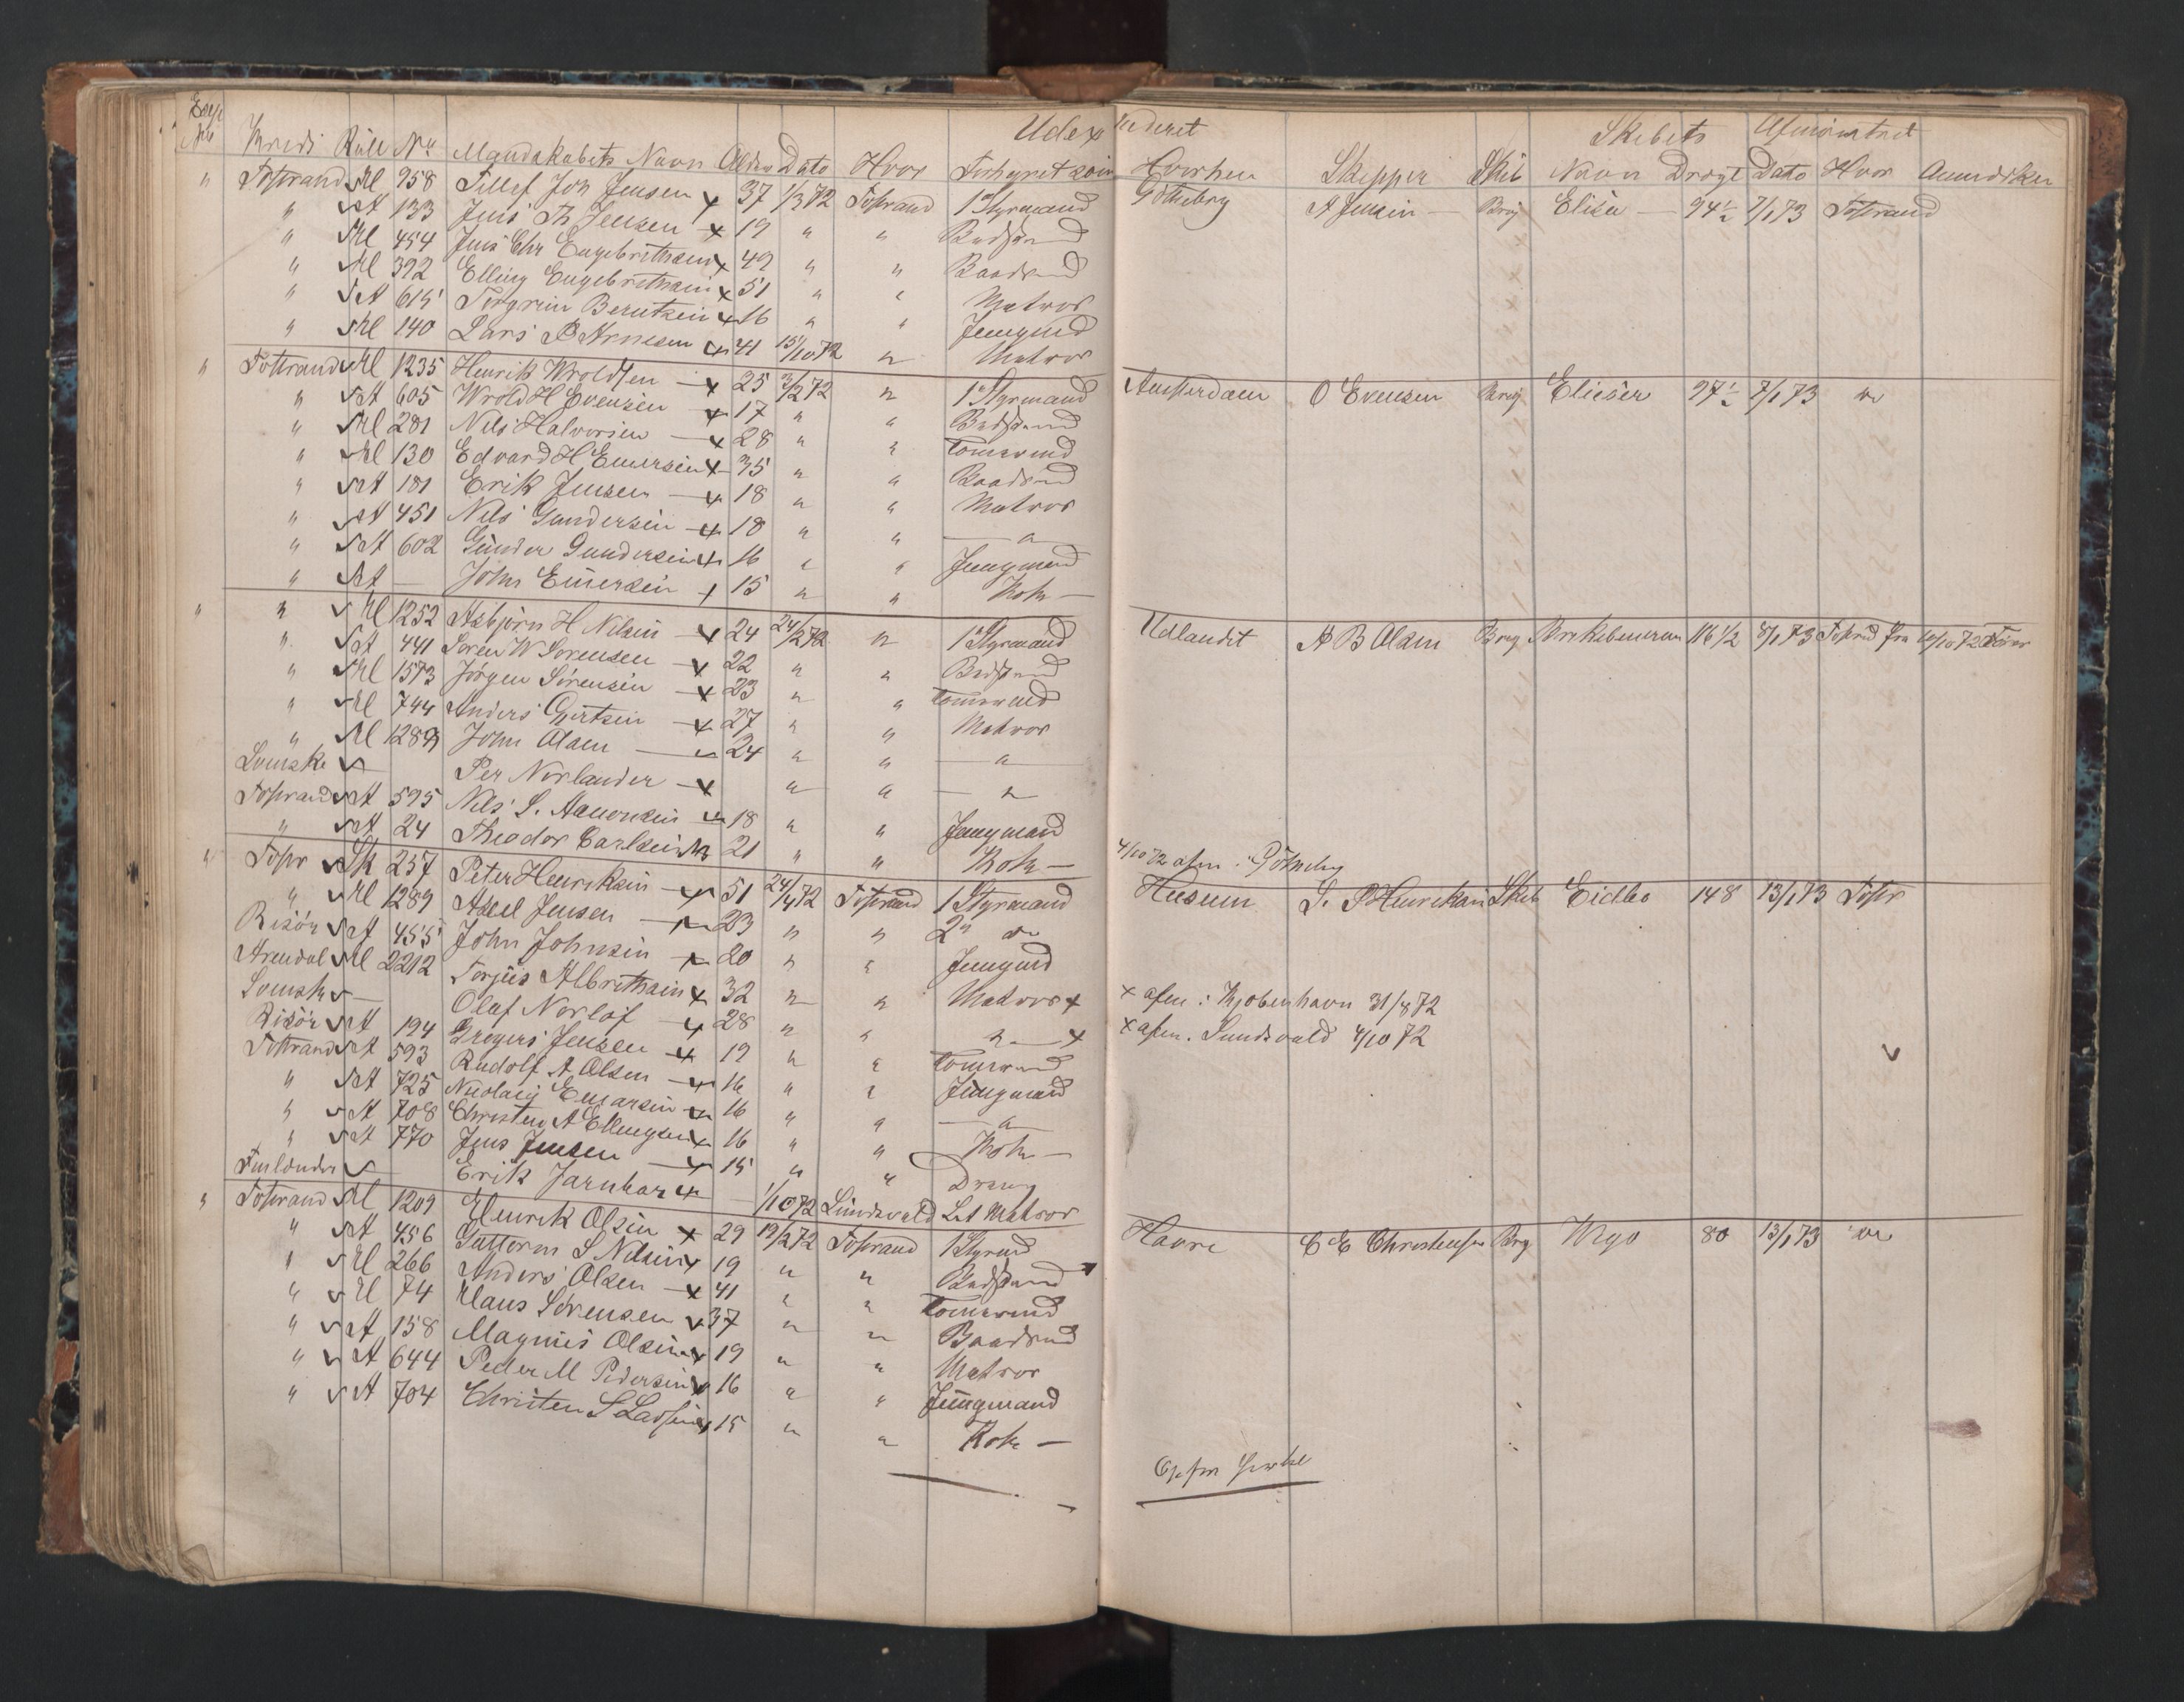 Exp Udexpederet Skibets Afmönstret
No Kreds Rull No Mandskabets Navn Alder Dato Hvor Forhyret som Hvorhen Skipper Skib Navn Drægt Dato Hvor Anmerkn
" Tvstrand Hl 958 Tellef Joh Jensen x 37 1/3 72 Tvstrand 1 Styrmand Götheborg A Jensen — Brig Elisa — 94½ 7/1 73 Tvstrand
" A 133 Jens Th Jensen x 19 " " Bestmand
" Hl 454 Jens Chr Engebrethsen x 49 " " Baadsmd
" Hl 392 Elling Engebrethsen x 51 " " Matros
" A 615 Torgrim Berntsen x 16 " " Jungmd
" Hl 140 Lars B Arnesen x 41 15/10 72 " Matros
" Tvstrand Hl 1235 Henrik Wroldsen — x 25 3/2 72 " 1 Styrmand Amsterdam O Evensen Brig Elieser 97½ 7/1 73 do
" A 605 Wrold H Evensen x 17 " " Bestmand
" Hl 281 Nils Halvorsen — x 28 " " Tømrmnd
" Hl 130 Edvard H Emersen x 35 " " Baadsmd
" A 181 Erik Jensen — x 18 " " Matros
" A 451 Nils Gundersen x 18 " " — " —
" A 602 Gunder Gundersen x 16 " " Jungmand
" A — John Emersen x 15 " " Kok —
" " Hl 1252 Asbjörn H Nilsen x 24 24/2 72 " 1 Styrmand Udlandet A B Olsen Brig 116½ 8/1 73 Tvstrd fra 10/10 72
" A 441 Soren W Sorensen x 22 " " Bestmd
" Hl 1573 Jörgen Sörensen x 23 " " Tømrmnd
" Hl 744 Anders Gjertsen x 27 " " Matros
" Hl 1289 John Olsen — 24 " " — " —
Svenske — Per Norlander x " " — " —
Tvstrand A 595 Nils S. Aanonsen 18 " " Jungmand
" A 24 Theodor Carlsen 21 " " Kok — 4/10 72 afm. i Götheborg
" Tvstr Sk 257 Peter Henriksen x 51 24/4 72 Tvstrand 1 Styrmand Husum S. P Henriksen Skib Eidbo 148 13/1 73 Tvstr
" Hl 1289 Axel Jensen — x 23 " " 2" do
Risör A 455 John Johnsen x 20 " " Jungmd
Arendal Hl 2212 Torjus Albrethsen x 32 " " Matros x x afm. i Kjöbenhavn 31/8 72
Svensk — Olaf Norlöf x 28 " " " x x afm. Sundsvald 4/10 72
Risör A 194 Gregers Jensen x 19 " " Tømrmnd
Tvstrand A 593 Rudolf A Olsen x 16 " " Jungmand
" A 725 Nicolaij Emarsen x 16 " " — " —
" A 708 Christen A Ellingsen x 16 " " Kok —
" A 770 Jens Jensen x 15 " " Dreng
Finlander — Erik Jarnhar x — 1/10 72 Sundsvald Let Matros
" Tvstrand Hl 1209 Henrik Olsen x 29 19/2 72 Tvstrand 1 Styrmd Havre C E Christensen Brg Wigo 80 13/1 73 do
" A 456 Guttorm S Nilsen x 19 " " Bestmand
" Hl 266 Anders Olsen x 41 " " Tømrmnd
" Hl 74 Klaus Sörensen x 37 " " Baadsmd
" A 158 Magnus Olsen x 19 " " Matros
" A 644 Peder M Pedersen x 16 " " Jungmand
" A 704 Christen S Larsen x 15 " " Kok —